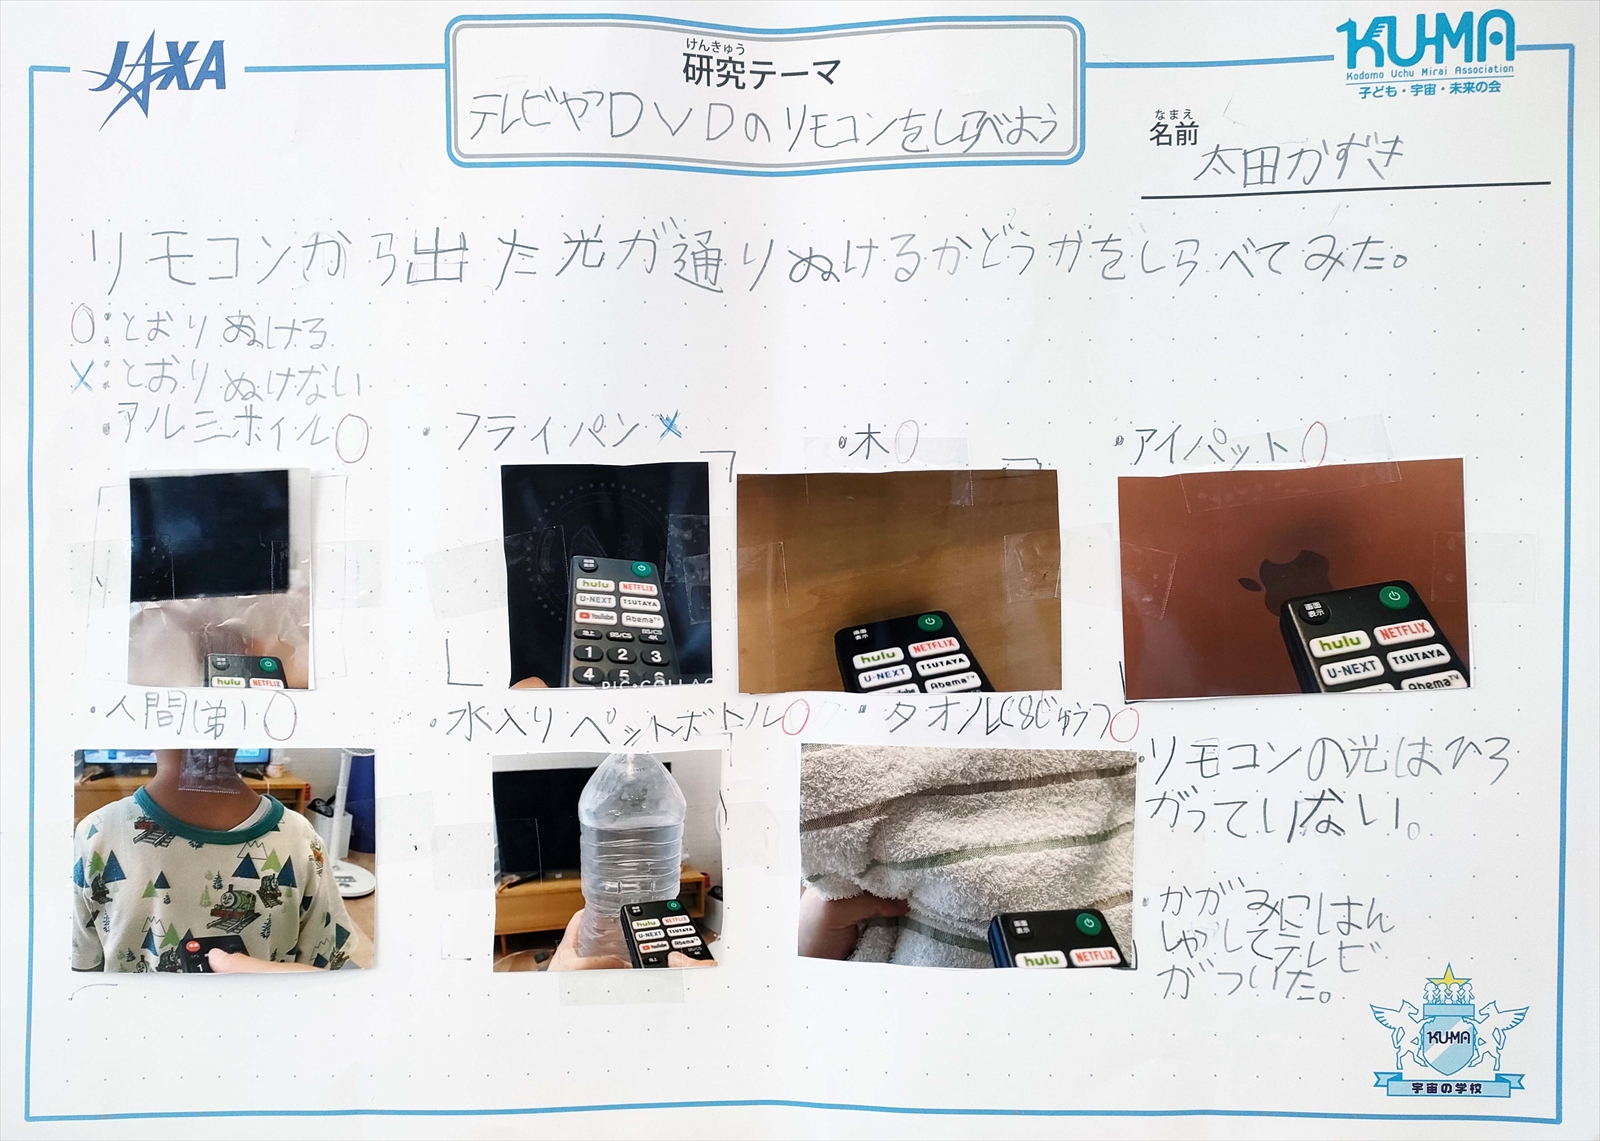 JAXA
けんきゅう
研究テーマ
テレビやDVDのリモコンをしらべよう
KUMA
Kodomo Uchu Mirai Association
子ども・宇宙・未来の会
なまえ
名前
太田かずき
リモコンから出た光が通りぬけるかどうかをしらべてみた。
○:とおりぬける
×:とおりぬけない
・アルミホイル○
・フライパン×
・木○
・アイパット○
画面表示
hulu
NETFLIX
画面表示
hulu
NETFLIX
U-NEXT
TSUTAYA
YouTube
AbemaTV
地上
BS/CS
BS/CS 4K
1 2 3
4 5 6
PIC•COLLAG
画面表示
hulu
NETFLIX
U-NEXT
TSUTAYA
AbemaTV
画面表示
hulu
NETFLIX
U-NEXT
TSUTAYA
AbemaTV
・人間(弟)○
・水入りペットボトル○
・タオル(8じゅう)○
1
hulu
NETFLIX
U-NEXT
TSUTAYA
YouTube
AbemaTV
画面表示
hulu
NETFLIX
・リモコンの光はひろ
がっていない。
・かがみにはん
しゃしてテレビ
がついた。
KUMA
宇宙の学校